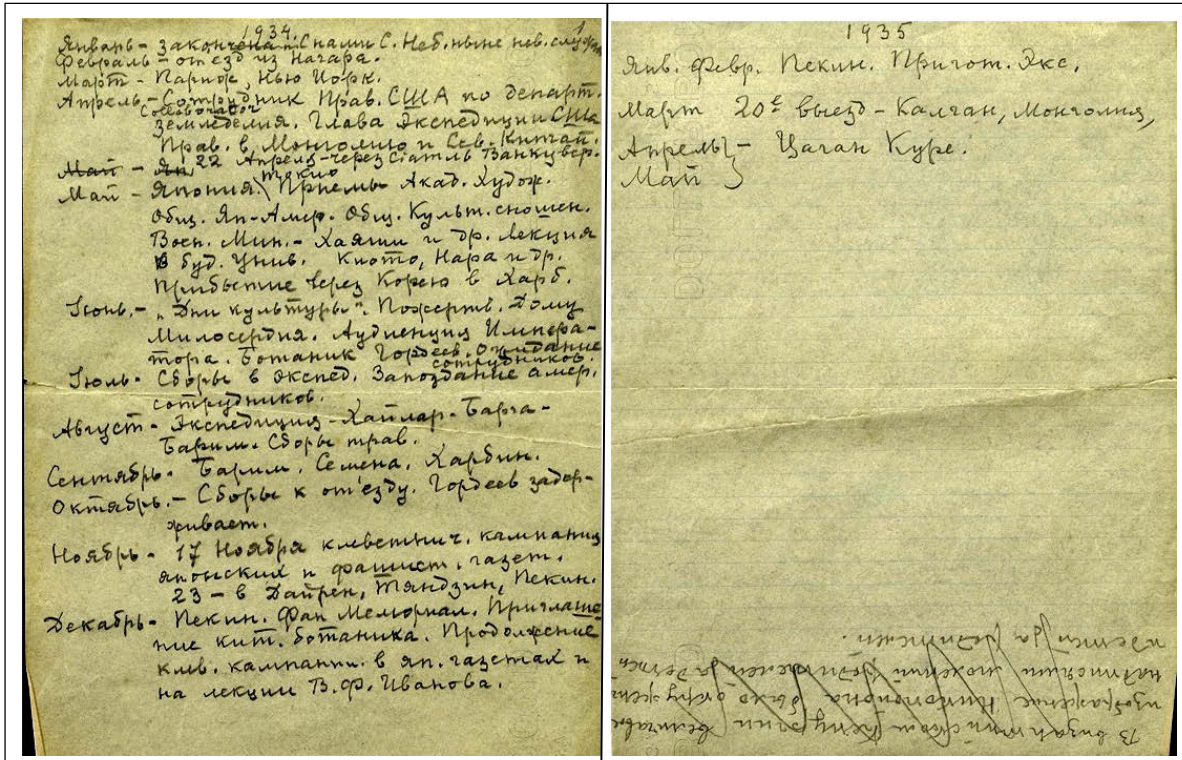 1934. 1
Январь - закончена с нами С. Неб. ныне нев.
Февраль - отъезд из Нагара.
Март - Париж, Нью Йорк.
Апрель - Сотрудник Прав. США по департ.
земледелия. Глава Экспедиции США
Прав. в Монголию и Сев. Китай.
Май - Яп 22 Апреля - через Сиатль Ванкувер.
Токио
Май - Япония. Приемы Акад. Худож.
Общ. Яп-Амер. Общ. Культ. сношен.
Воен. Мин. - Хаяши и др. Лекция
в буд. Унив. Киото, Нара и др.
Прибытие через Корею в Харб.
Июнь. - "Дни культуры". Пожертв. Дому
Милосердия. Аудиенция Импера-
тора. Ботаник Гордеев. Ожидание
сотрудников.
Июль - Сборы в экспед. Запоздание амер.
сотрудников.
Август - Экспедиция - Хайлар - Барга -
Барим. Сборы трав.
Сентябрь - Барим. Семена. Харбин.
Октябрь. - Сборы к от'езду. Гордеев задер-
живает.
Ноябрь - 17 Ноября клеветнич. кампания
японских и фашист. газет.
23 - в Дайрен, Тяндзин, Пекин.
Декабрь - Пекин. Фан Мемориал. Приглаше-
ние кит. ботаника. Продолжение
клев. кампании. в яп. газетах и
на лекции В.Ф. Иванова.
1935
Янв. Февр. Пекин. Пригот. Экс.
Март 20е выезд - Калган, Монголия,
Апрель } - Цаган Куре.
Май
В византийском величавое
изображение было окружен